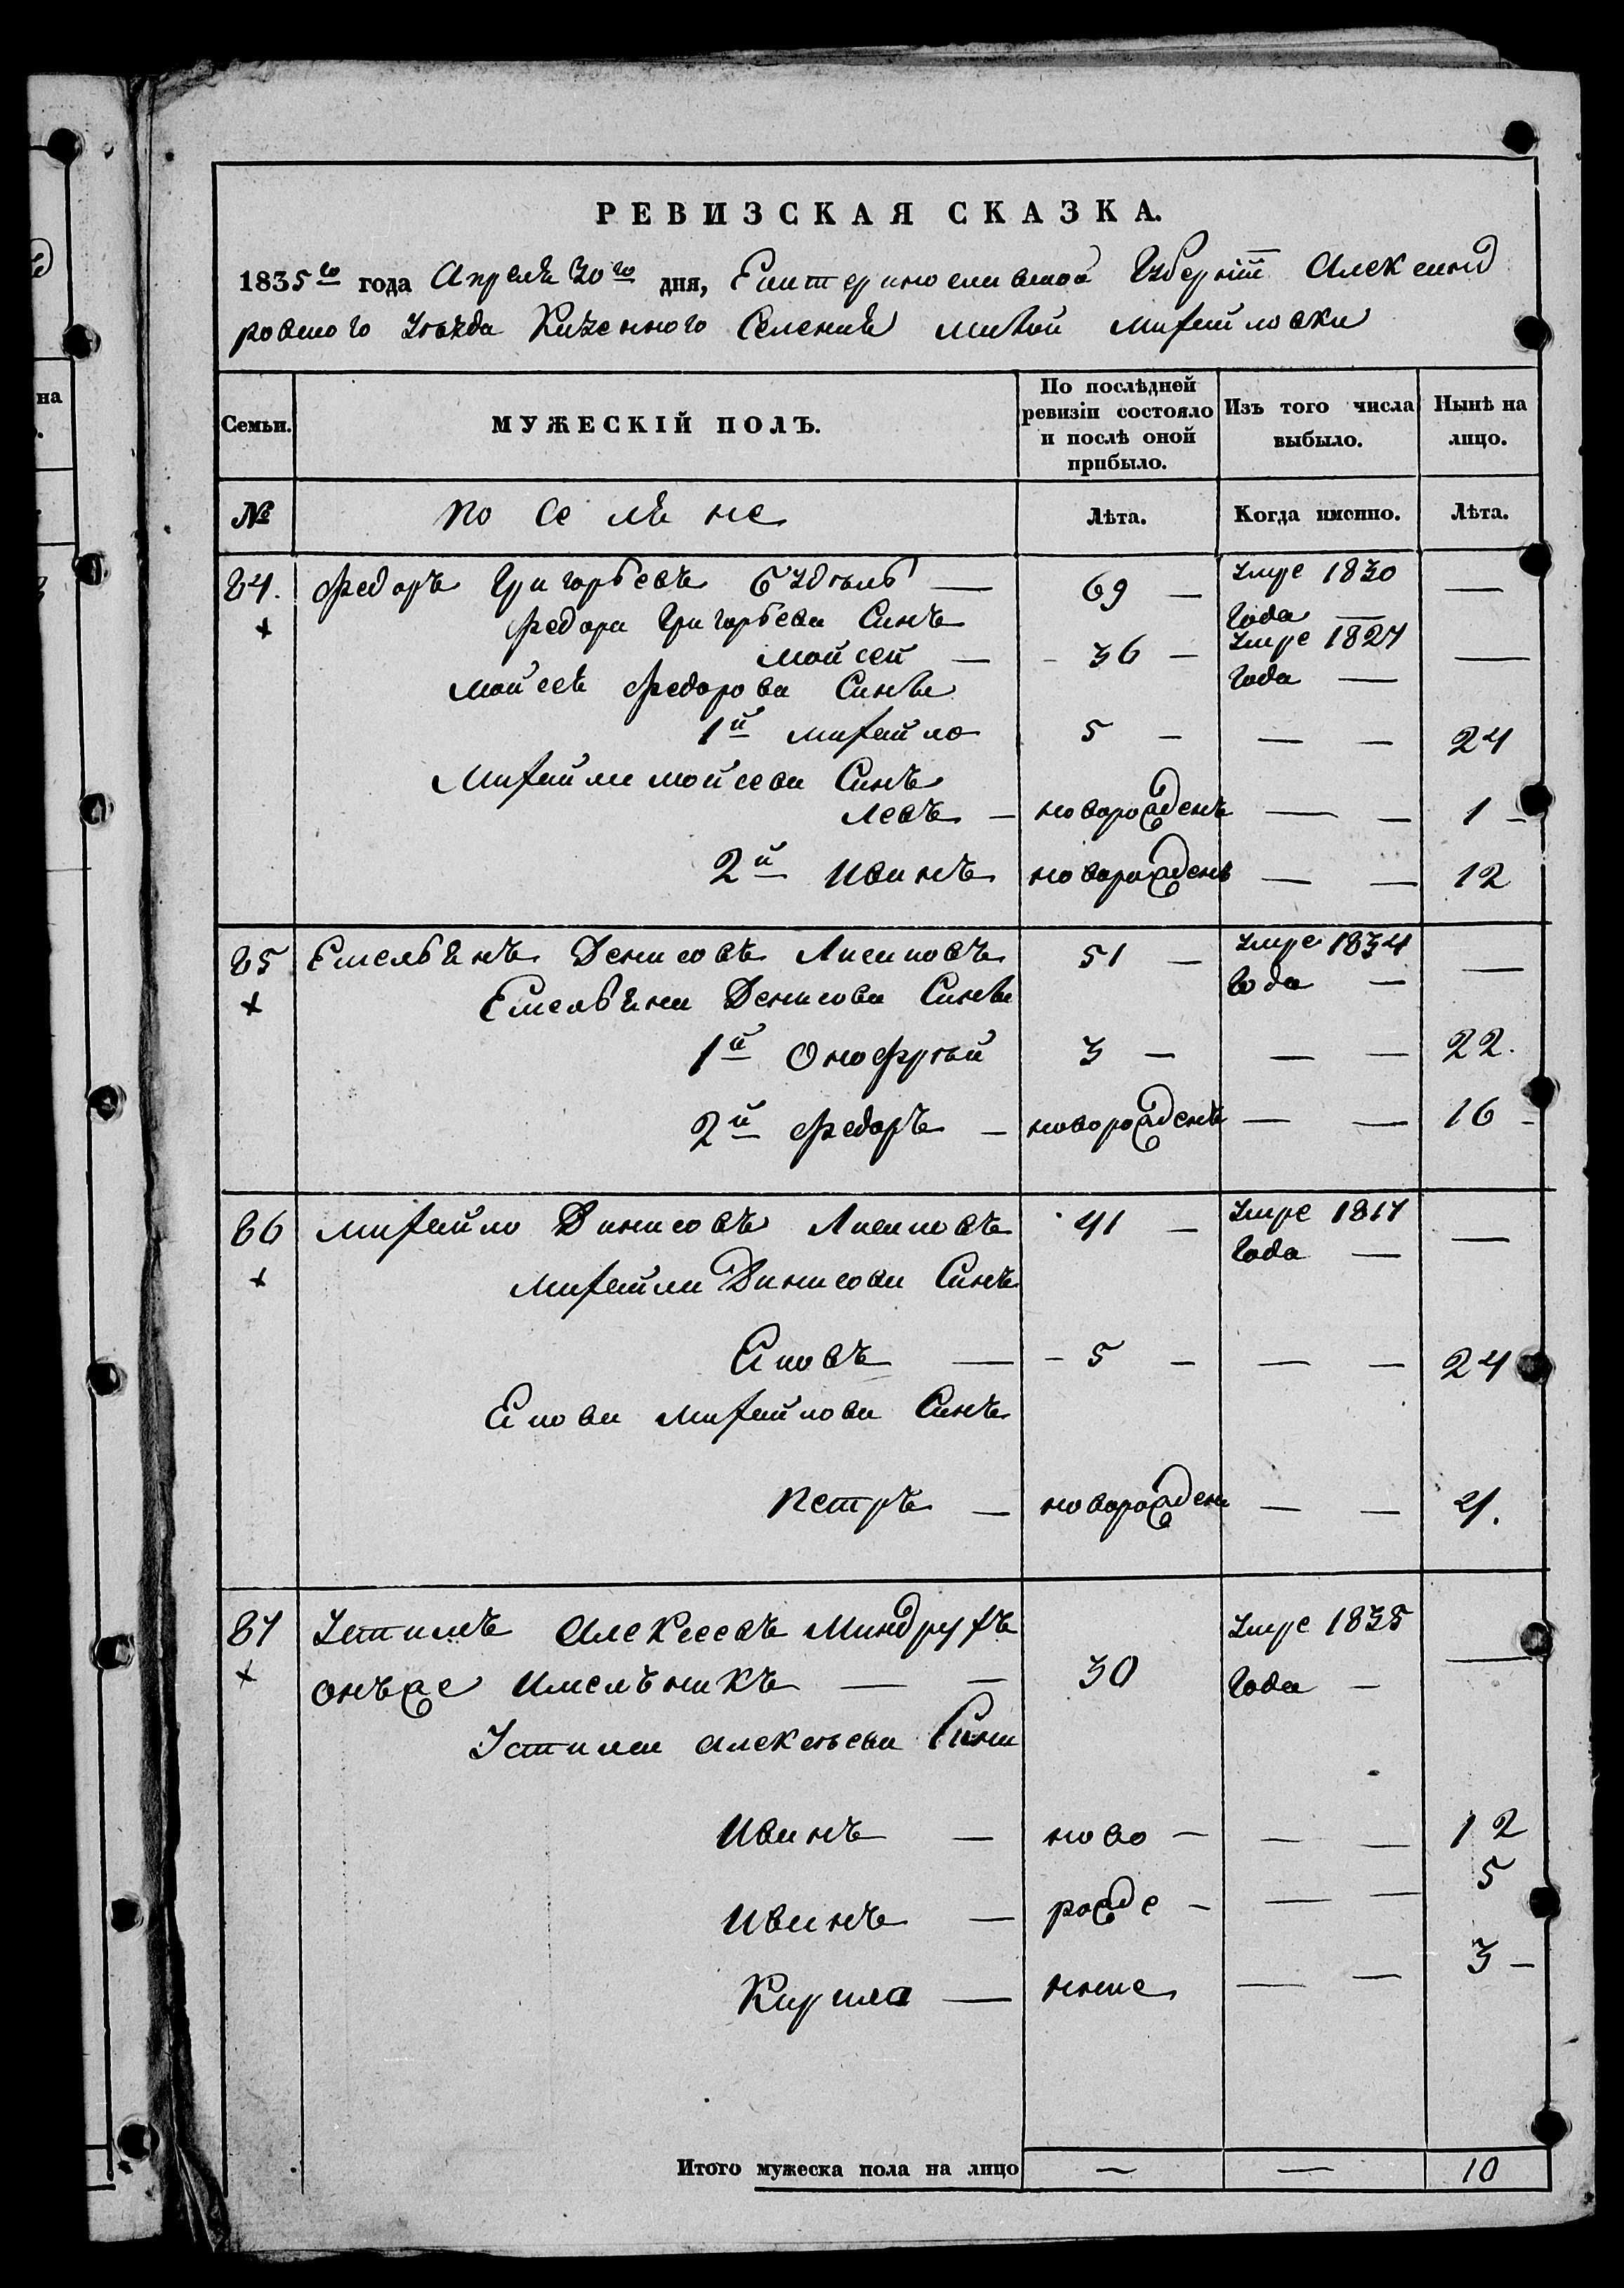 на
РЕВИЗСКАЯ СКАЗКА.
1835го года Апреля 30го дня, Екатеринославской Губерніи Александ
ровского Уезда Казенного Селения малой михайловки
Семьи.
МУЖЕСКІЙ ПОЛЪ.
По послѣдней ревизіи состояло и послѣ оной прибыло.
Изъ того числа выбыло.
Нынѣ на лицо.
№
поселяне
Лѣта.
Когда именно.
Лѣта.
84. Федоръ Григорьевъ 69 — умре 1830 года — —
Федора Григорьева Синъ
мойсей — 36 — умре 1827 года — —
мойсея Федорова Сины
1й михайло 5 — — — 24
Михайла мойсева Синъ
Левъ — новорожденъ — — 1 —
2й Иванъ новорожденъ — — 12
85 Емельянъ Денисовъ 51 — умре 1834 года — —
Емельяна Денисова Сины
1й Онофрѣй 3 — — — 22.
2й Федоръ — новорожденъ — — 16 —
86 михайло Динисовъ 41 — умре 1817 года — —
Михайла Динисова Синъ
Яковъ — 5 — — — 24
Якова михайлова Синъ
Петръ — новорожден — — 4.
87 Устимъ Алексеевъ 30 умре 1835 года — —
онъже — —
Устима алексѣева Сины
Иванъ — ново — — — 12
Иванъ — рожде — — — 5
Кирила — нние — — 3 —
Итого мужеска пола на лицо — — 10